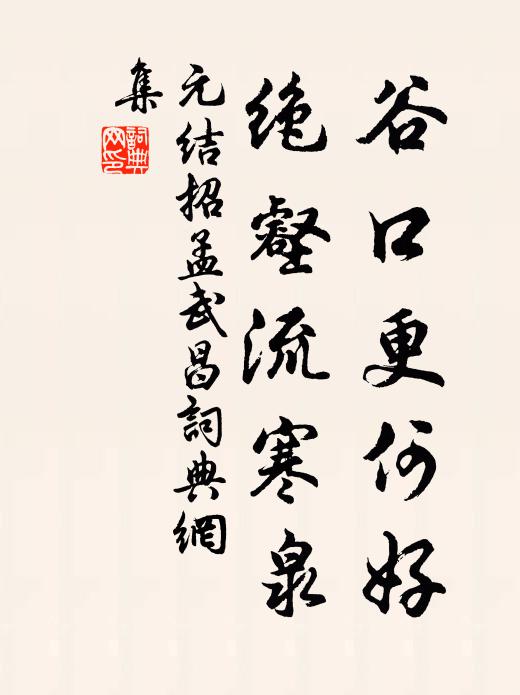 谷口更何好
绝壑流寒泉
元结招孟武昌詞典網
集
詞典
网印